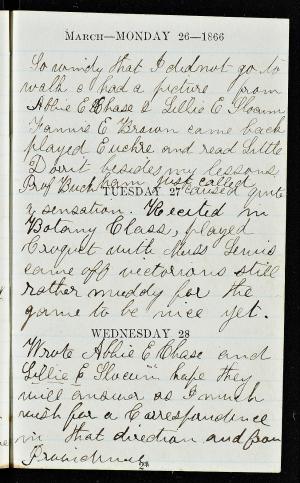 MARCH—MONDAY 26—1866
So windy that I did not go to
walk & had a picture from
Abbie E Chase & Lillie E Slocum
Fannie E Brown came back
played Euchre and read Little
Dorrit besides my lessons,
Prof Buckham just called
TUESDAY 27 caused quite
a sensation. Recited in
Botany Class, played
Croquet with Miss Lewis
came off victorious still
rather muddy for the
game to be nice yet.
WEDNESDAY 28
Wrote Abbie E Chase and
Lillie E Slocum hope they
will answer as I much
wish for a Correspondence
in that direction and from
Providence